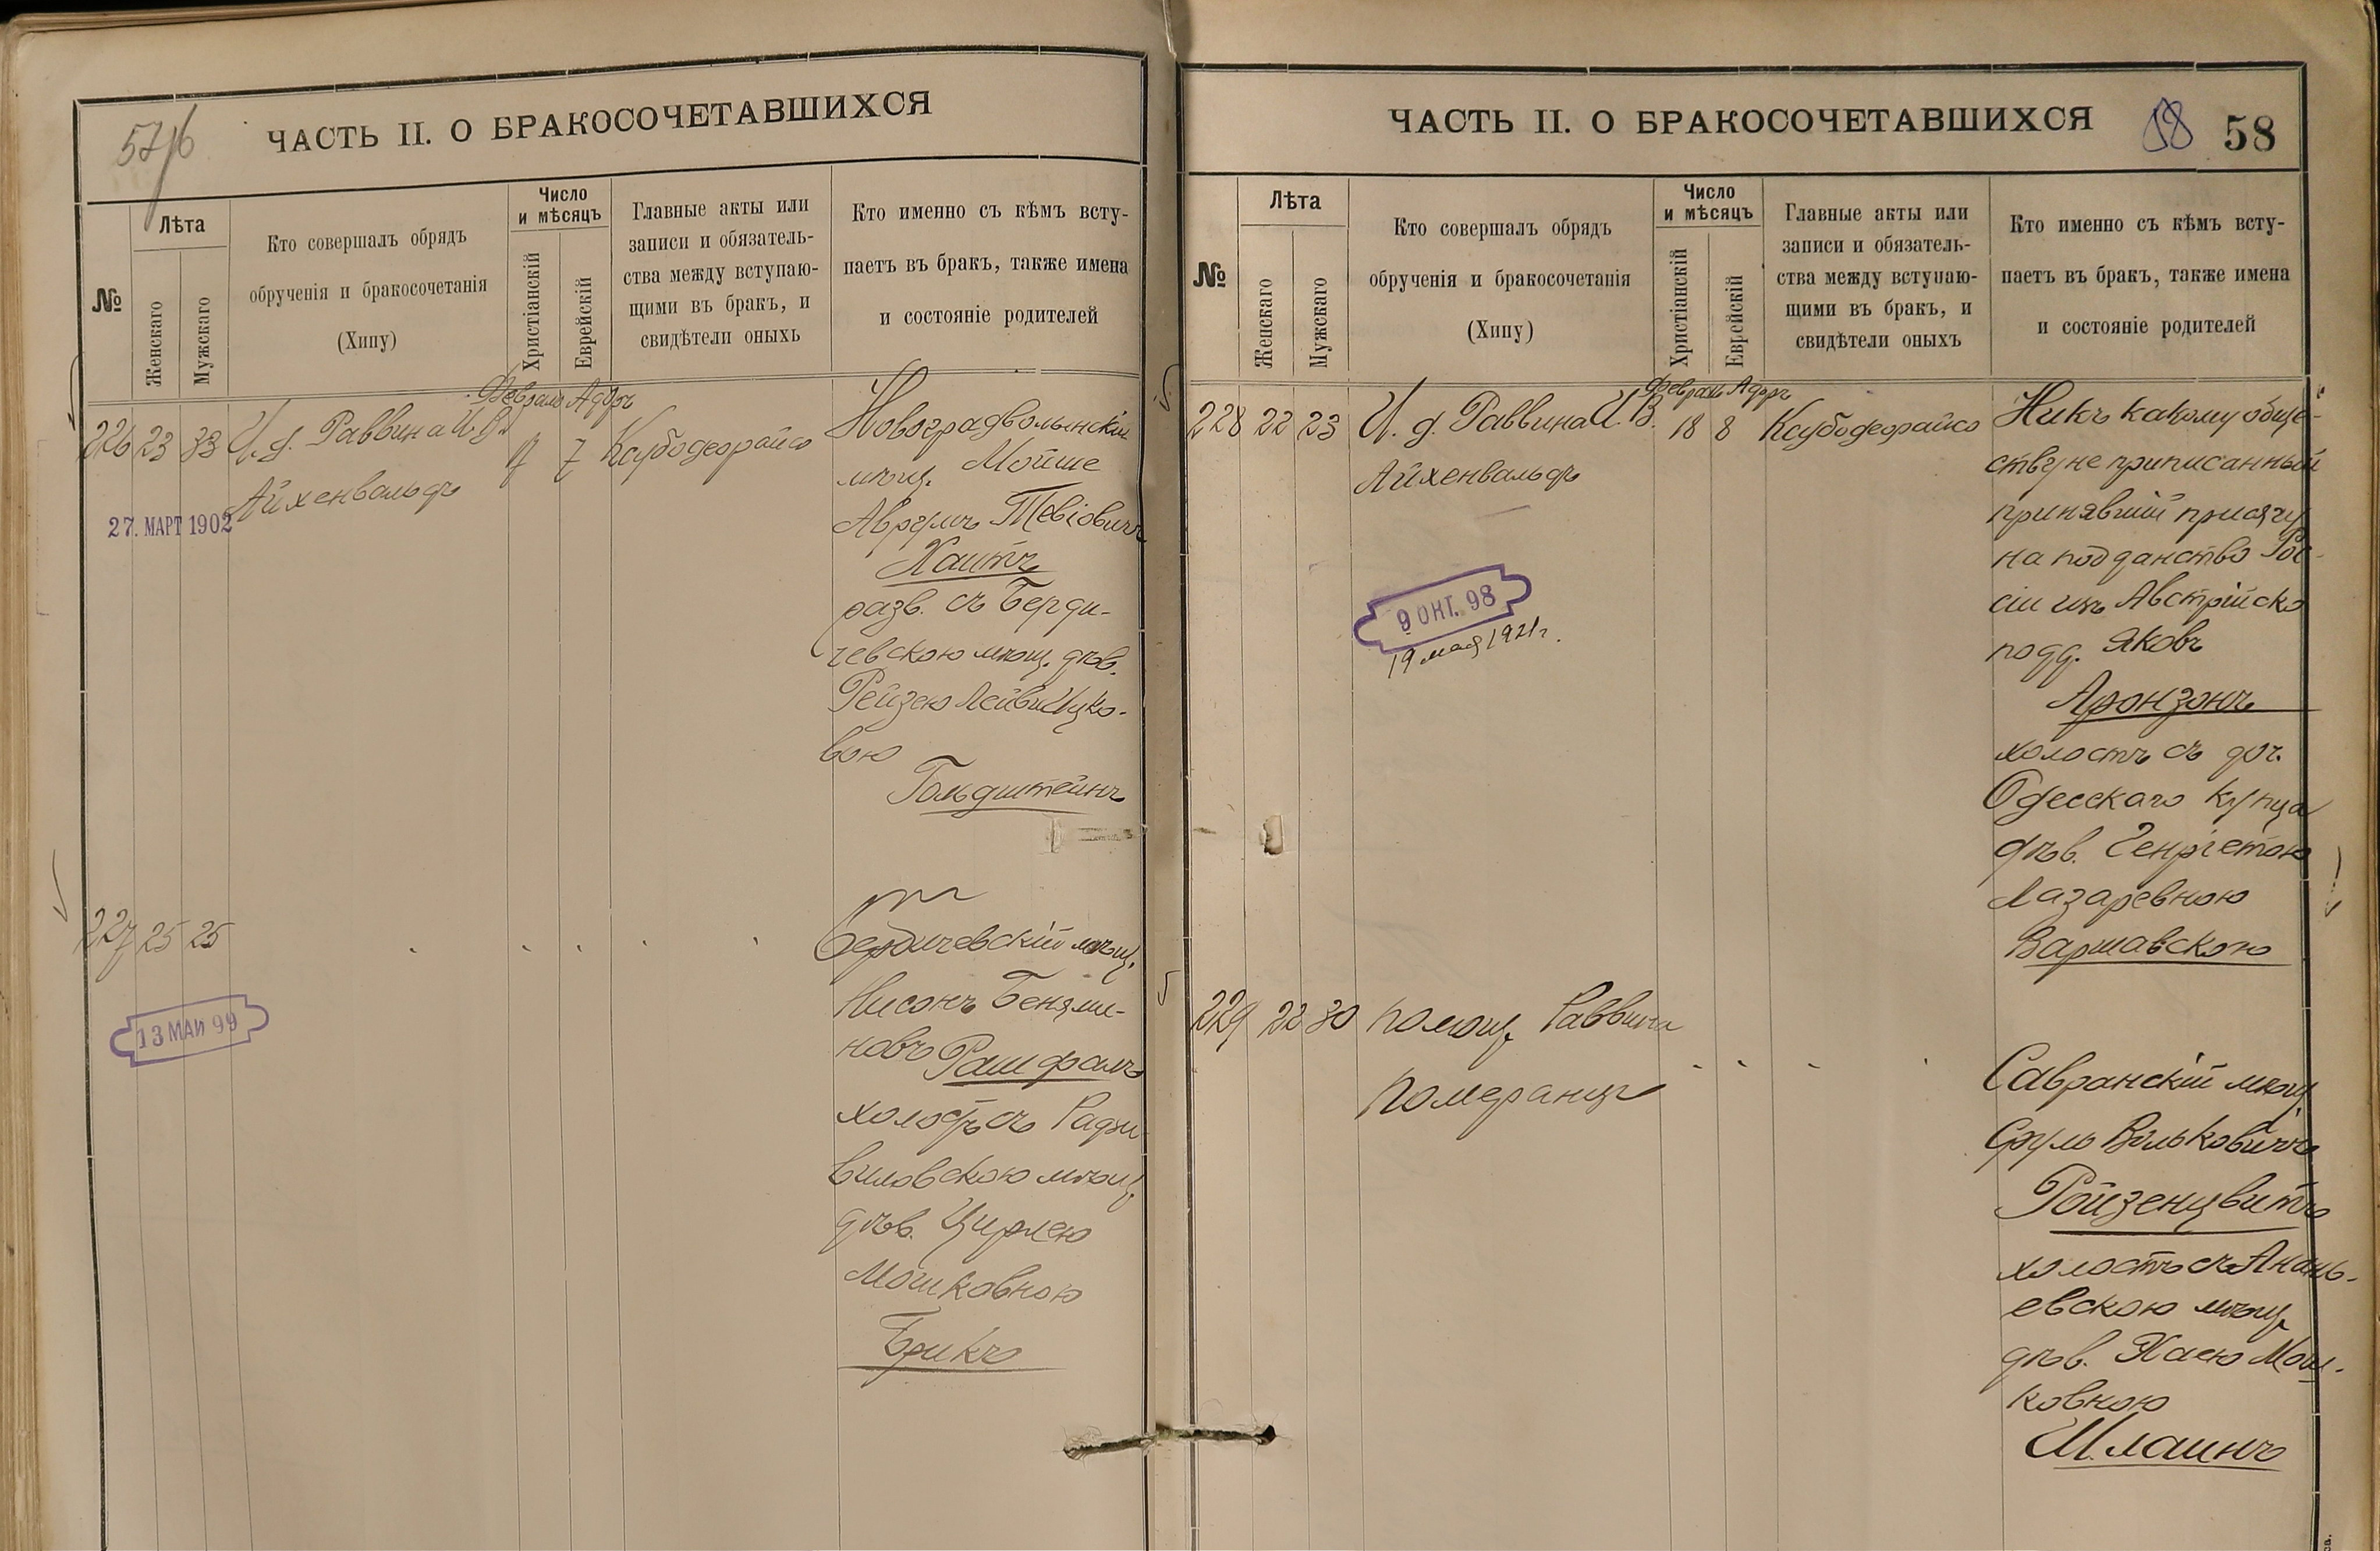 57/б
ЧАСТЬ II. О БРАКОСОЧЕТАВШИХСЯ
№
Лѣта
Женскаго
Мужскаго
Кто совершалъ обрядъ
обрученія и бракосочетанія
(Хипу)
Число
и мѣсяцъ
Христіанскій
Еврейскій
Главные акты или
записи и обязатель-
ства между вступаю-
щими въ бракъ, и
свидѣтели оныхъ
Кто именно съ кѣмъ всту-
паетъ въ бракъ, также имена
и состояніе родителей
Февраль Адоръ
226 23 33 И. д. Раввина И. В. 7 Касубодеорайсо
Айхенвальдъ
27. МАРТ 1902
Новоградволынскій
мѣщ. Мойше
Аврумъ Тевіовичъ
Хаитъ
разв. съ Берди-
чевскою мѣщ. дѣв.
Рейзею Лейви Ицко-
вою
Гольдштейнъ
227 25 25
13 МАИ 99
Бердичевскій мѣщ.
Нисонъ Бенями-
новъ Рашфалъ
холостъ съ Радзи
виловскою мѣщ
дѣв. Цирлею
Мошковною
Брикъ
ЧАСТЬ II. О БРАКОСОЧЕТАВШИХСЯ
58 58
№
Лѣта
Женскаго
Мужскаго
Кто совершалъ обрядъ
обрученія и бракосочетанія
(Хипу)
Число
и мѣсяцъ
Христіанскій
Еврейскій
Главные акты или
записи и обязатель-
ства между вступаю-
щими въ бракъ, и
свидѣтели оныхъ
Кто именно съ кѣмъ всту-
паетъ въ бракъ, также имена
и состояніе родителей
Февраль Адоръ
228 22 23 И. д. Раввина И. В. 18 8 Касубодеорайсо
Айхенвальдъ
9 ОКТ. 98
19 мая 1921 г.
Никъ какому обще-
ству не приписанный
принявшій присягу
на подданство Рос-
сіи изъ Австрійско
подд. Яковъ
Аронзонъ
холостъ съ доч.
Одесскаго купца
дѣв. Генріетою
Лазаревною
Варшавскою
229 22 30 помощ. Раввина
Померанцъ
Савранскій мѣщ
Сруль Вольковичъ
Ройзенцвитъ
холостъ съ Анань-
евскою мѣщ
дѣв. Хаею Мош-
ковною
Шлаинъ